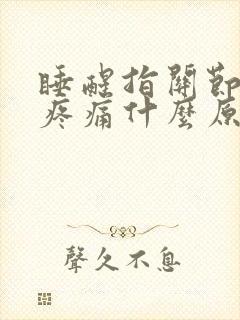 睡醒指關節
疼痛什麼原
聲久不息